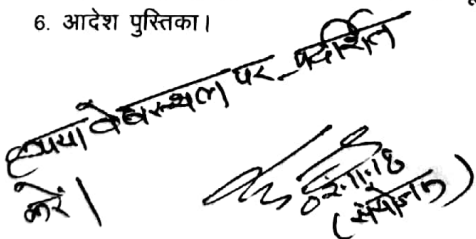 6. आदेश पुस्तिका।
कृपया वेबस्थल पर प्रदर्शित
करें।
02.11.18
(संयोजन)